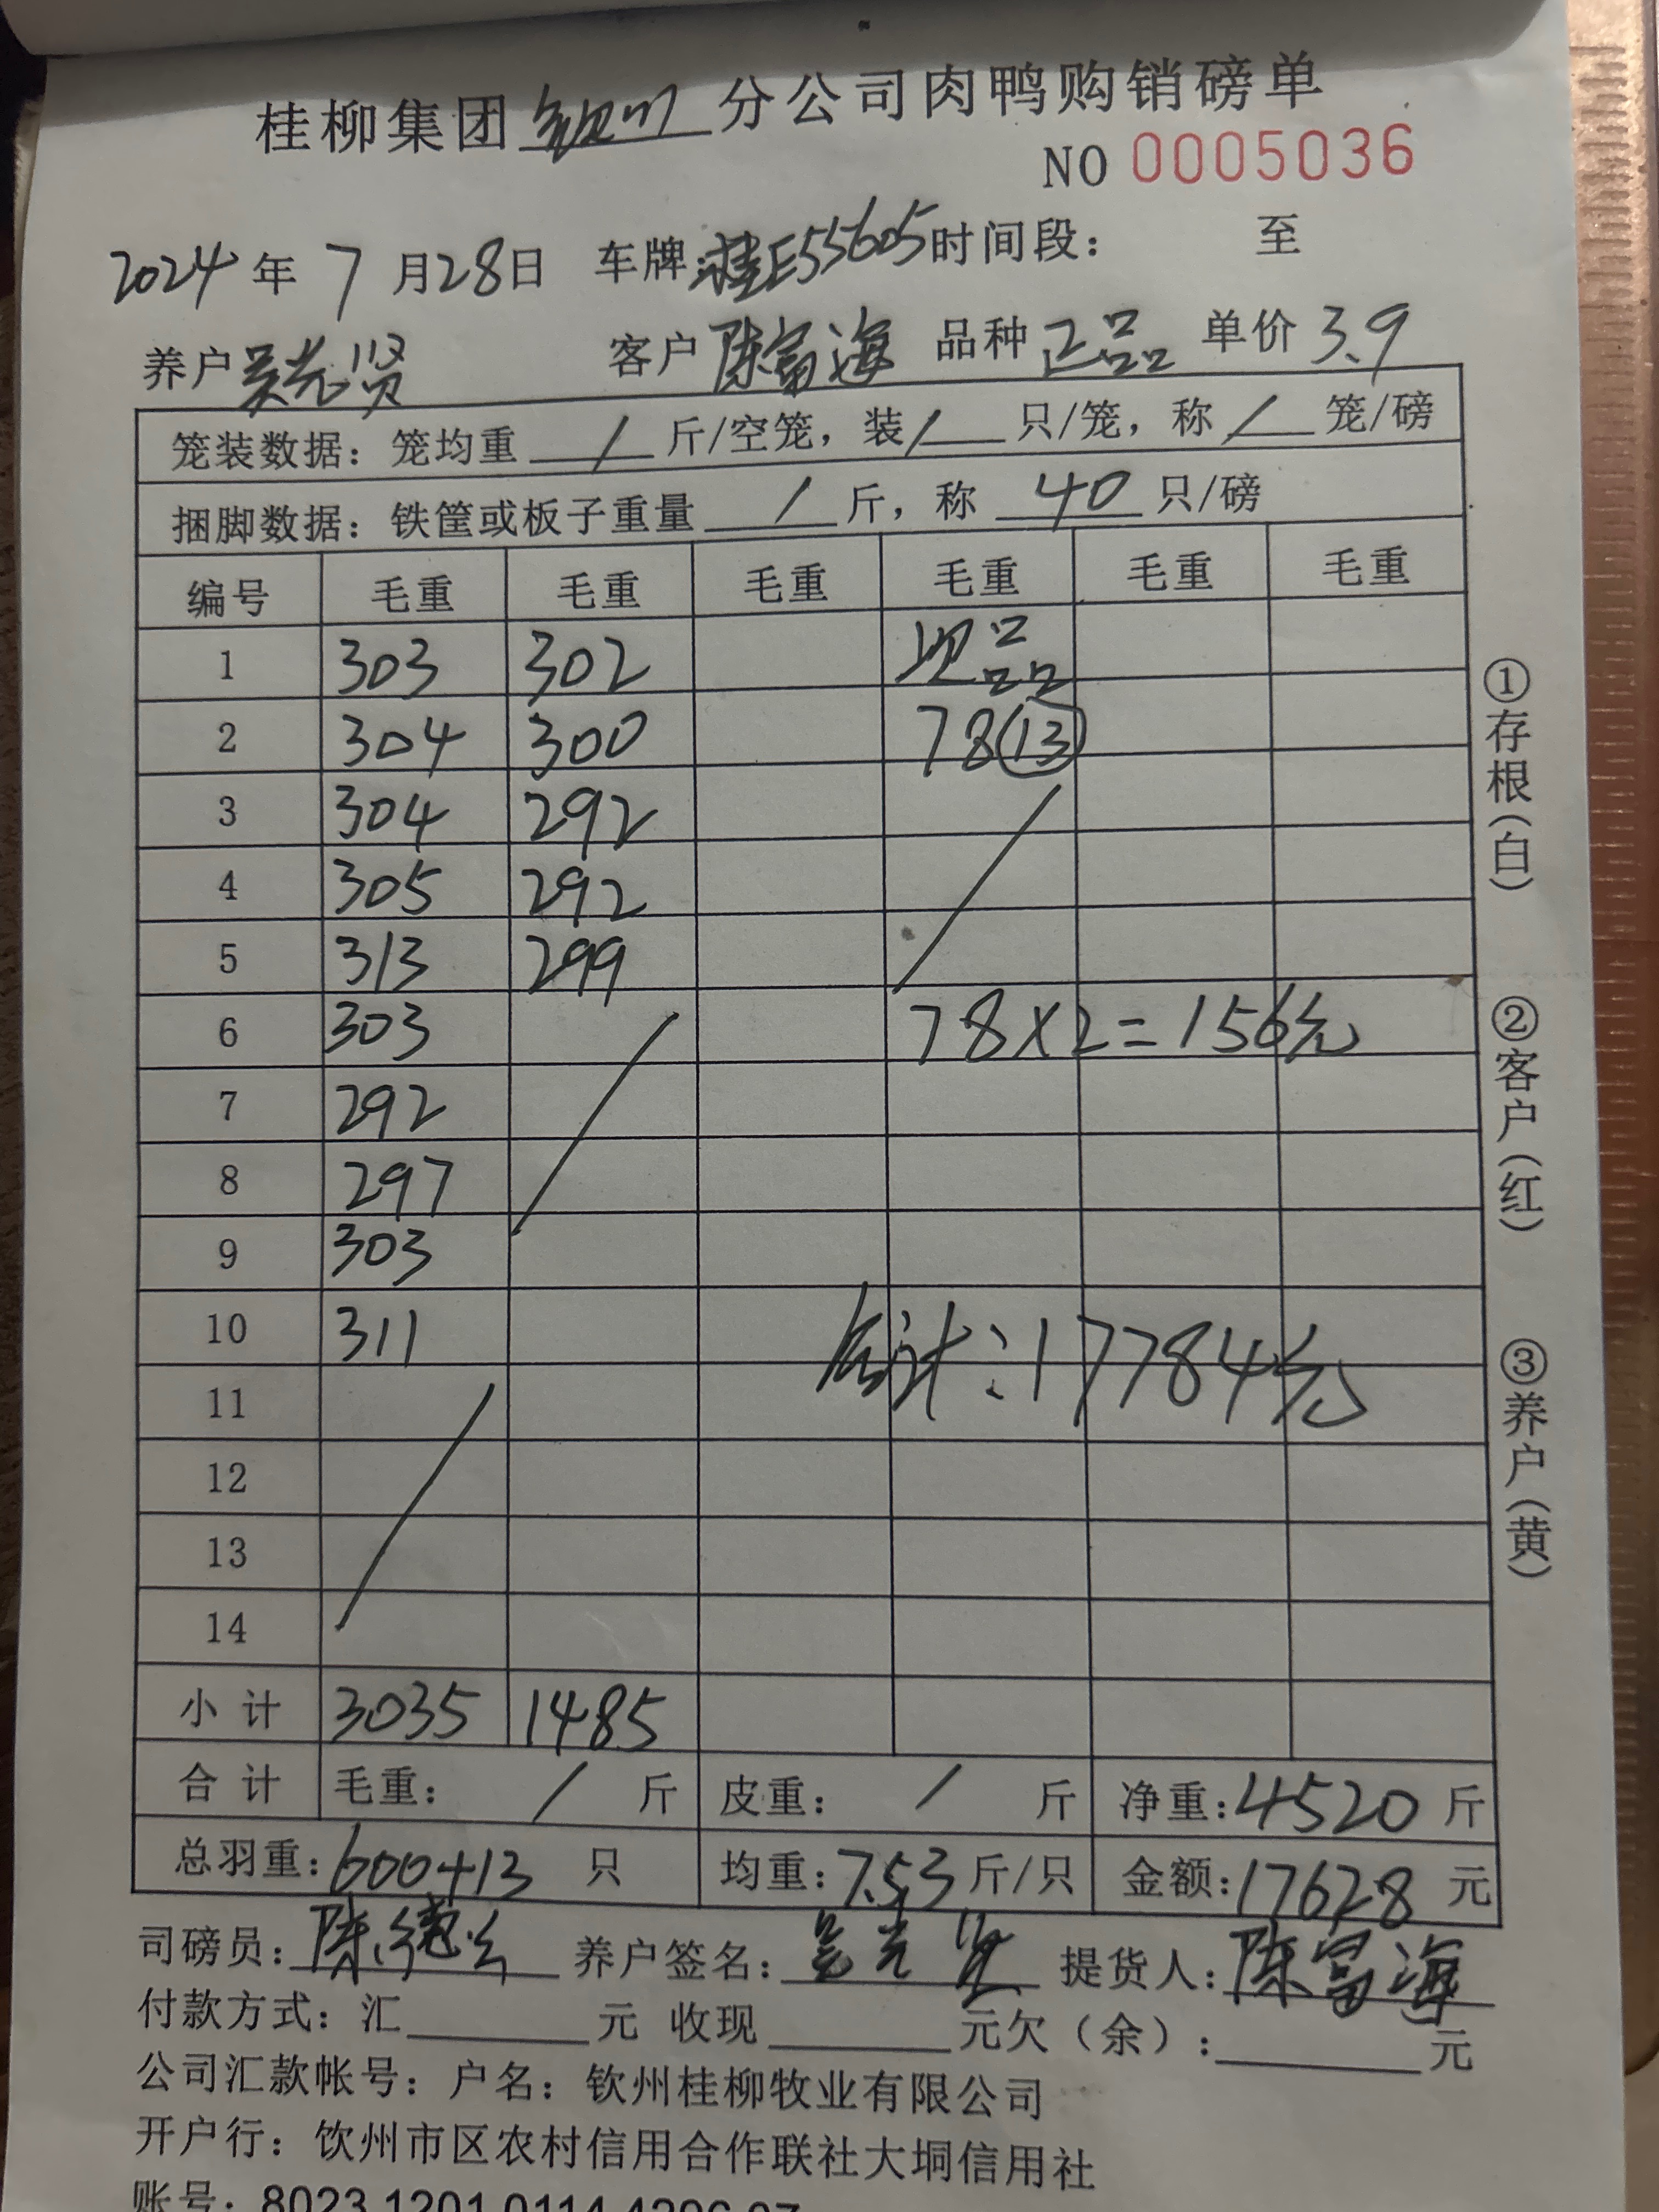 桂柳集团钦州分公司肉鸭购销磅单
NO 0005036
2024年7月28日 车牌:桂E55605时间段: 至
养户吴光贤 客户陈富海 品种正品 单价3.9
笼装数据:笼均重/斤/空笼,装/只/笼,称/笼/磅
捆脚数据:铁筐或板子重量/斤,称40只/磅
编号 毛重 毛重 毛重 毛重 毛重 毛重
1 303 302 次品
2 304 300 78(13)
3 304 292
4 305 292
5 313 299
6 303 78×2=156元
7 292
8 297
9 303
10 311 合计:17784元
11
12
13
14
小计 3035 1485
合计 毛重: / 斤 皮重: / 斤 净重:4520斤
总羽重:600+13只 均重:7.53斤/只 金额:17628元
司磅员:陈 养户签名:吴光贤 提货人:陈富海
付款方式:汇 元 收现 元欠(余): 元
公司汇款帐号:户名:钦州桂柳牧业有限公司
开户行:钦州市区农村信用合作联社大垌信用社
账号:8023 1201 0114
①存根(白)
②客户(红)
③养户(黄)